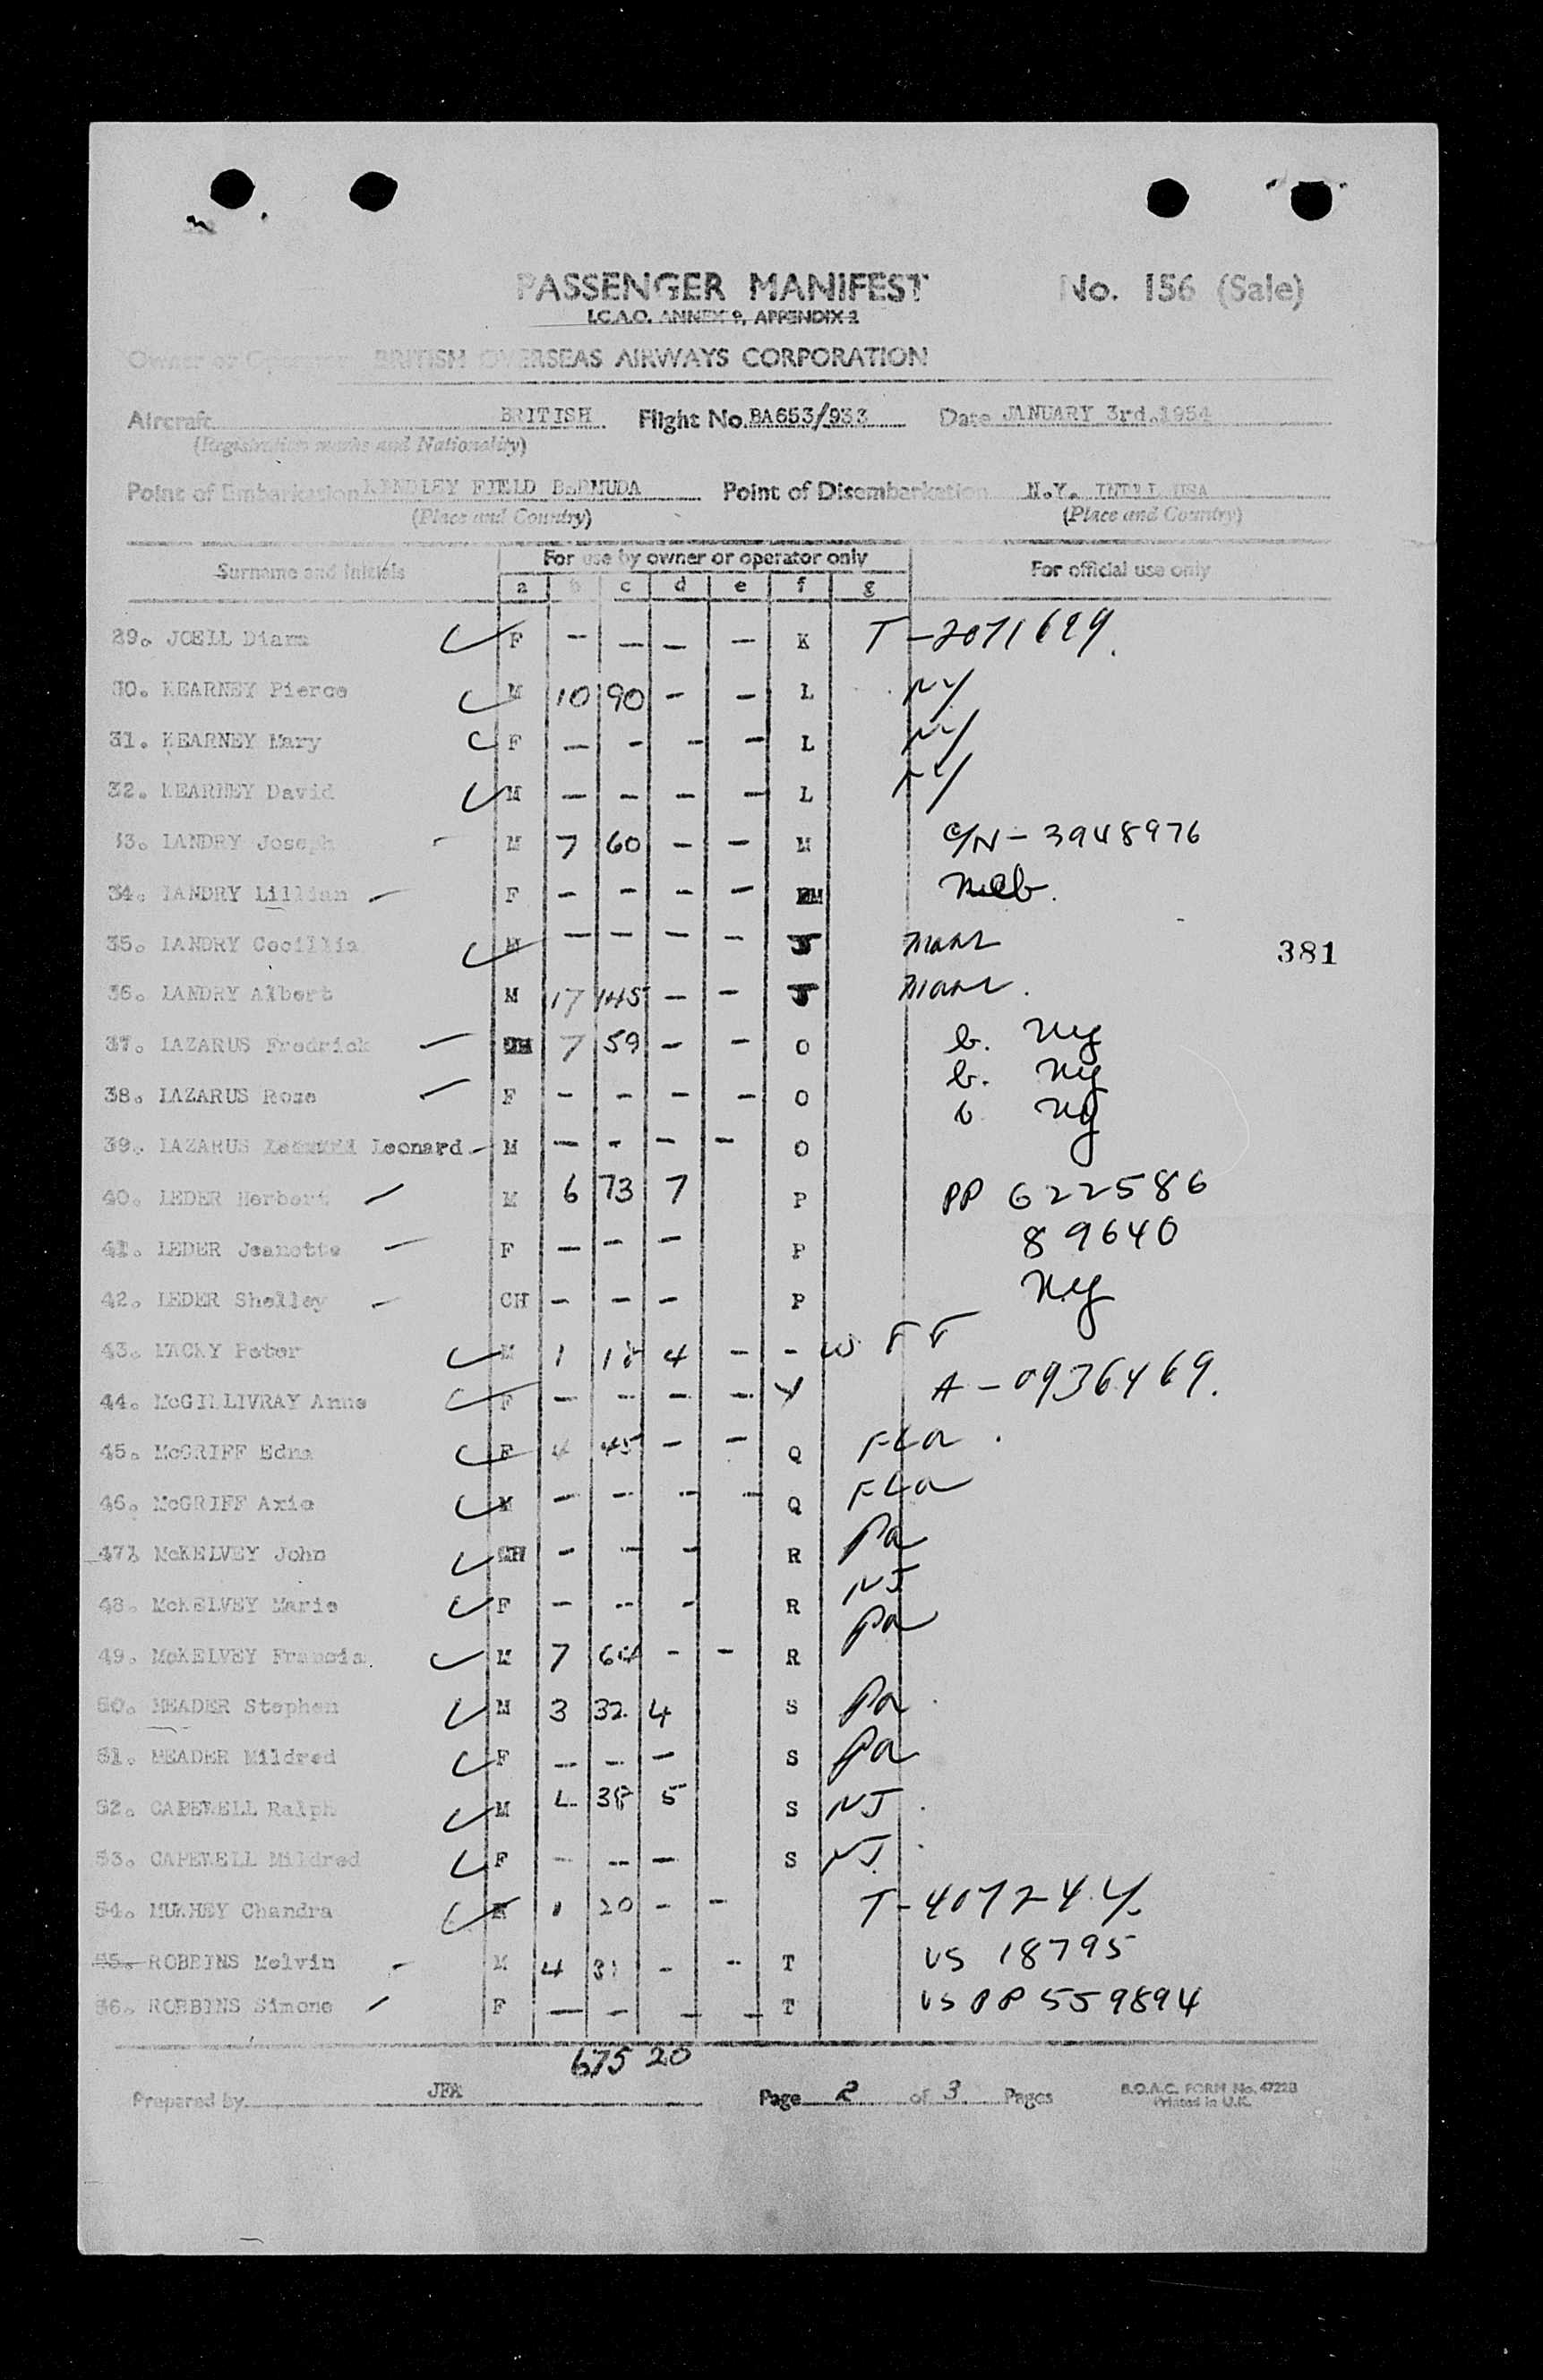 PASSENGER MANIFEST No. 156 (Sale)
I.C.A.O. ANNEX 9, APPENDIX 2
Owner or Operator BRITISH OVERSEAS AIRWAYS CORPORATION
Aircraft BRITISH Flight No. BA653/933 Date JANUARY 3rd,1954
(Registration marks and Nationality)
Point of Embarkation KINDLEY FIELD BERMUDA Point of Disembarkation N.Y. INTL USA
(Place and Country) (Place and Country)
Surname and Initials For use by owner or operator only For official use only
a b c d e f g
29. JOELL Diana F - - - - K T-2071629.
30. KEARNEY Pierce M 10 90 - - L NY
31. KEARNEY Mary F - - - - L NY
32. KEARNEY David M - - - - L NY
33. LANDRY Joseph M 7 60 - - M C/N-3948976
34. LANDRY Lillian F - - - - M
35. LANDRY Cecillia - - - - J Mass 381
36. LANDRY Albert M 17 145 - - J Mass.
37. LAZARUS Fredrick 7 59 - - O b. Ny
38. LAZARUS Rose F - - - - O b. Ny
39. LAZARUS Leonard M - - - - O b Ny
40. LEDER Herbert M 6 73 7 P PP 622586
41. LEDER Jeanette F - - - P 89640
42. LEDER Shelley CH - - - P Ny
43. LACKY Peter M 1 18 4 - - W
44. McGILLIVRAY Anne F - - - - A-0936469.
45. McGRIFF Edna F 4 45 - - Q FLa.
46. McGRIFF Axie M - - - - Q FLa
47. McKELVEY John CH - - - R Pa
48. McKELVEY Marie F - - - R NJ
49. McKELVEY Francis M 7 64 - - R Pa
50. MEADER Stephen M 3 32 4 S Pa
51. MEADER Mildred F - - - S Pa
52. CAPEWELL Ralph M 38 5 S NJ
53. CAPEWELL Mildred F - - - S NJ
54. MUKHEY Chandra 1 20 - - T-407244.
55. ROBBINS Melvin M 4 31 - - T US 18795
56. ROBBINS Simone F - - - - T US PP 559894
675 20
Prepared by JFA Page 2 of 3 Pages B.O.A.C. FORM No. 4722B
Printed in U.K.